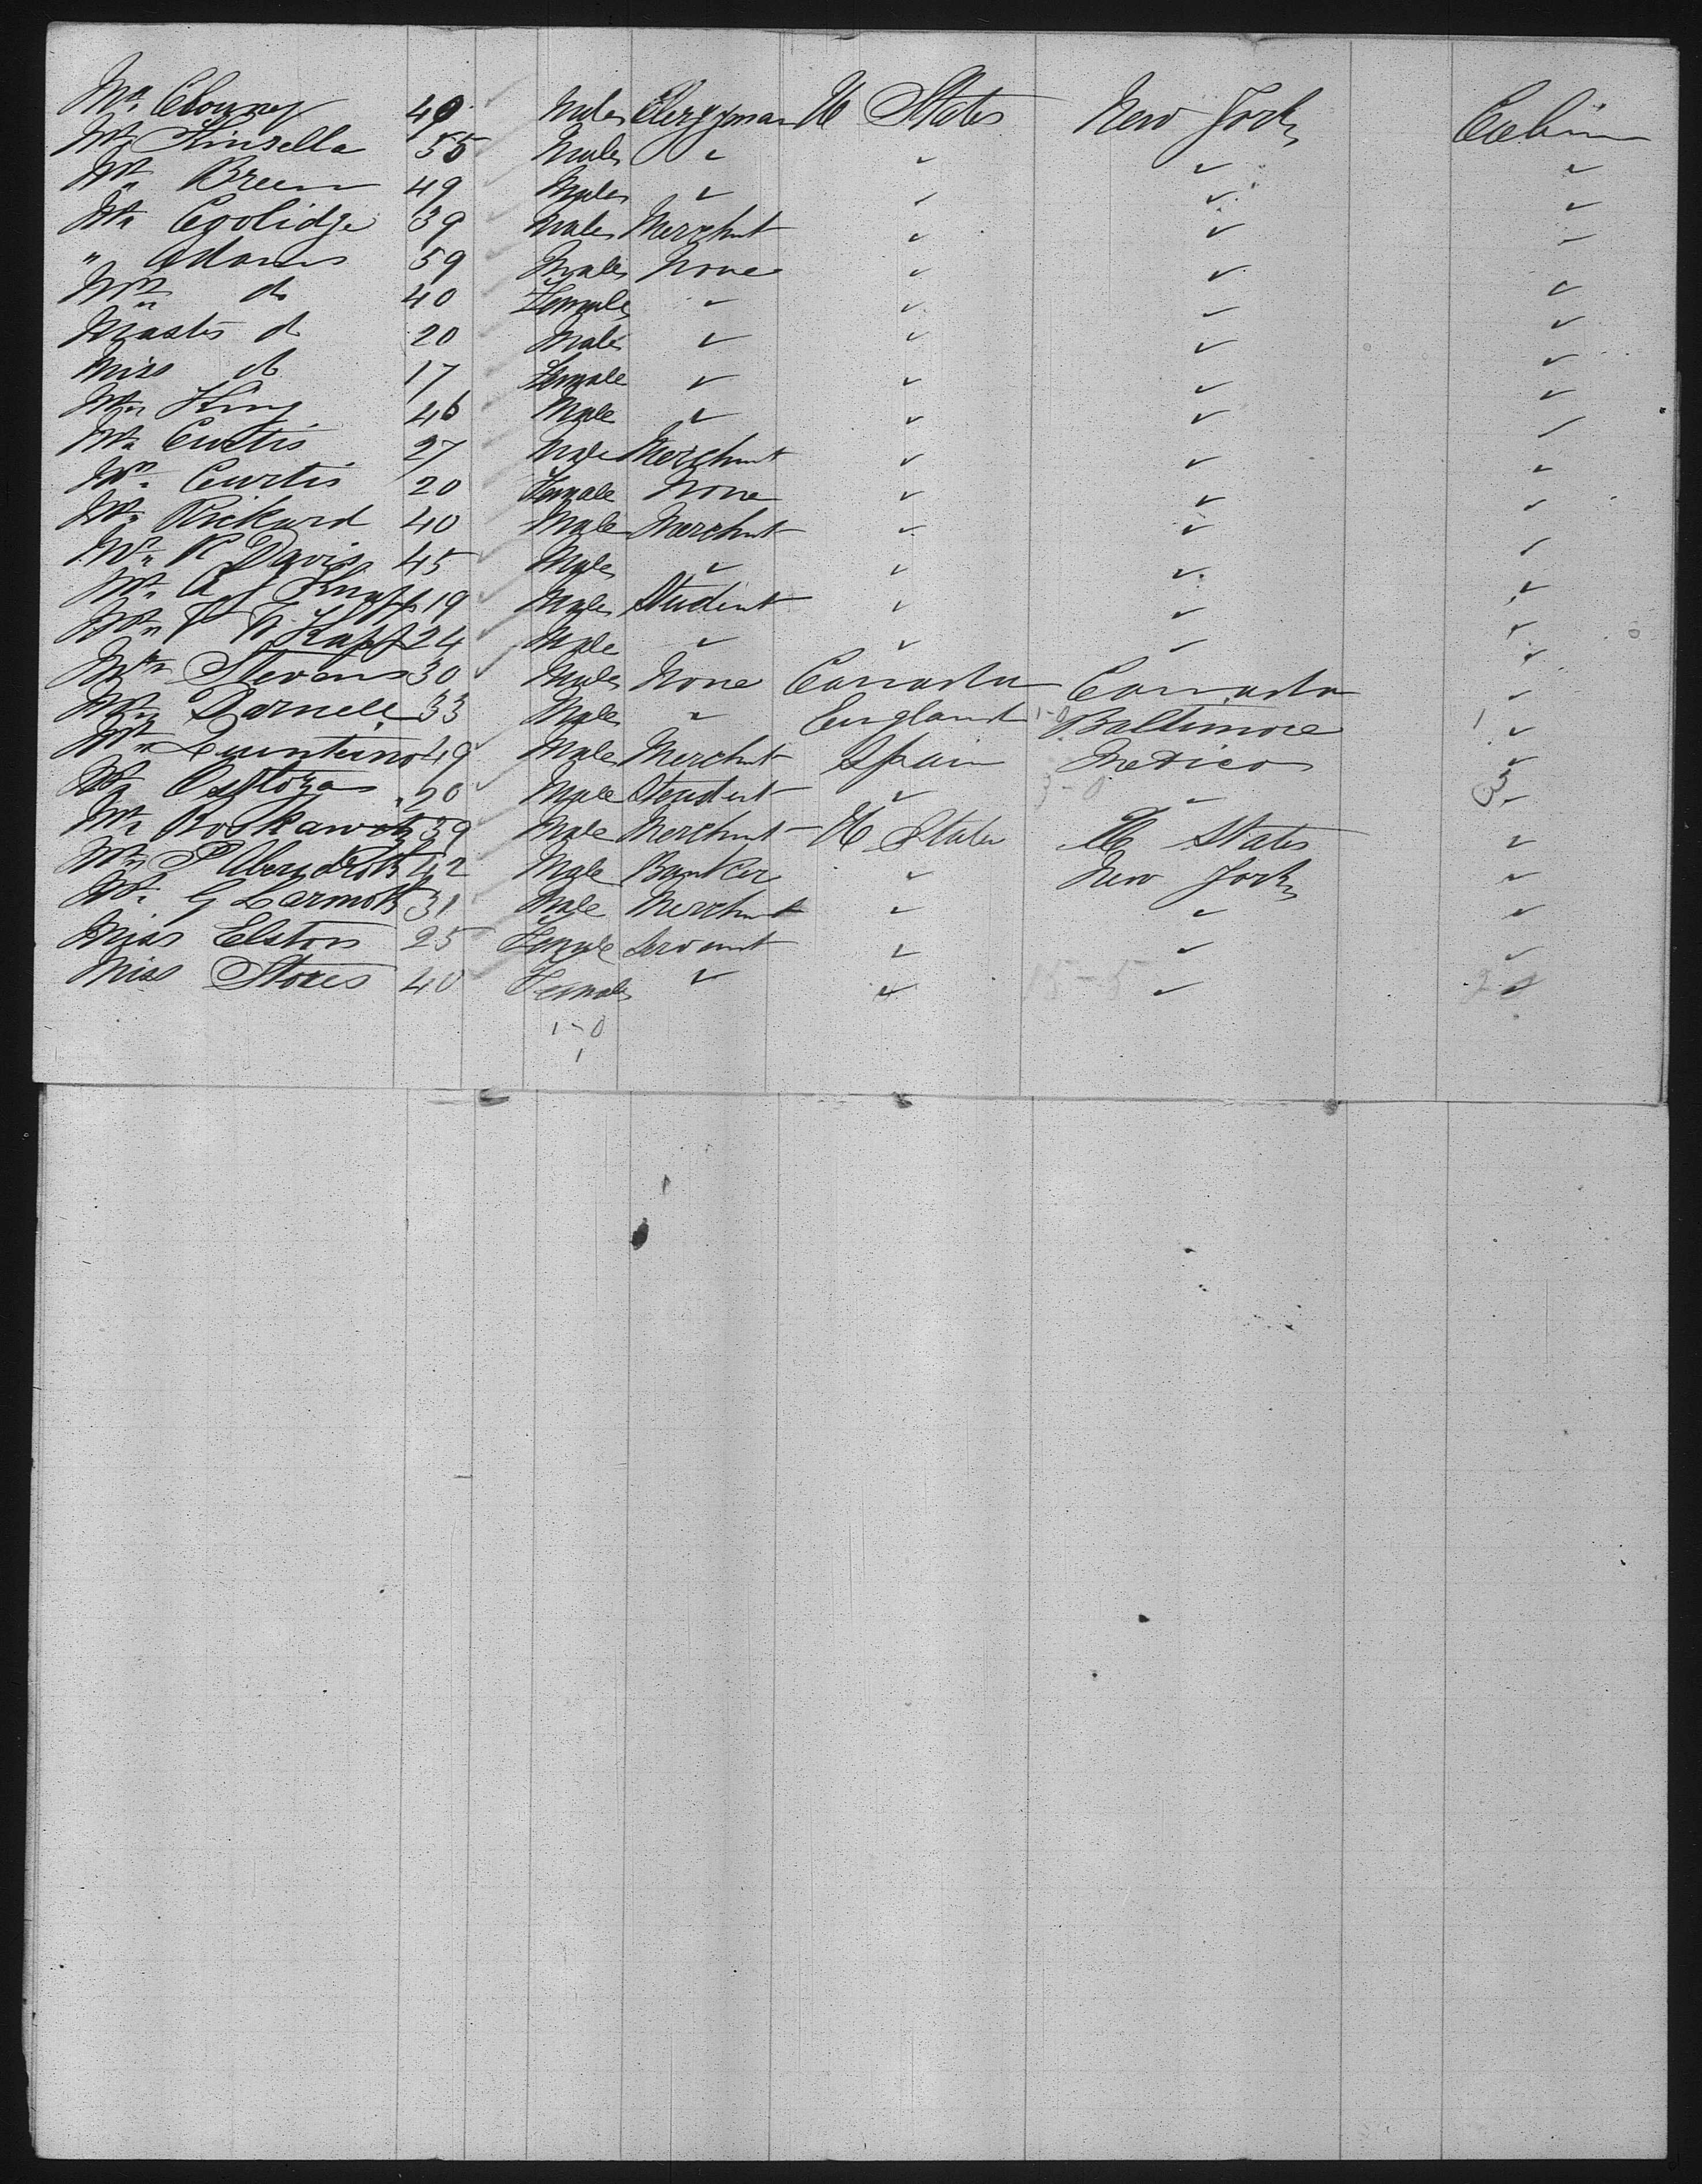 Mr. Clowney 49 Male Clergyman U States New York Cabin
Mr. Kinsella 55 Male " " " "
Mr. Breen 49 Male " " " "
Mr. Coolidge 39 Male Merchnt " " "
" Adams 59 Male None " " "
Mrs. do 40 Female " " " "
Master do 20 Male " " " "
Miss do 17 Female " " " "
Mr. King 46 Male " " " "
Mr. Curtis 27 Male Merchnt " " "
Mrs. Curtis 20 Female None " " "
Mr. Rickard 40 Male Merchnt " " "
Mr. R Davis 45 Male " " " "
Mr. A J 19 Male Student " " "
Mr. 24 Male " " " "
Mr. Stevens 30 Male None Canada Canada "
Mr. Darnell 33 Male " England 1-0 Baltimore 1 "
Mr. Quinteino 49 Male Merchnt Spain Mexico "
Mr. 20 Male Student " 3-0 " 3 "
Mr. 39 Male Merchnt U States U States "
Mr. P 42 Male Banker " New York "
Mr. G Larmoth 31 Male Merchnt " " "
Miss Elston 25 Female Servant " " "
Miss Stokes 40 Female " " 15-5 " "
1-0
1